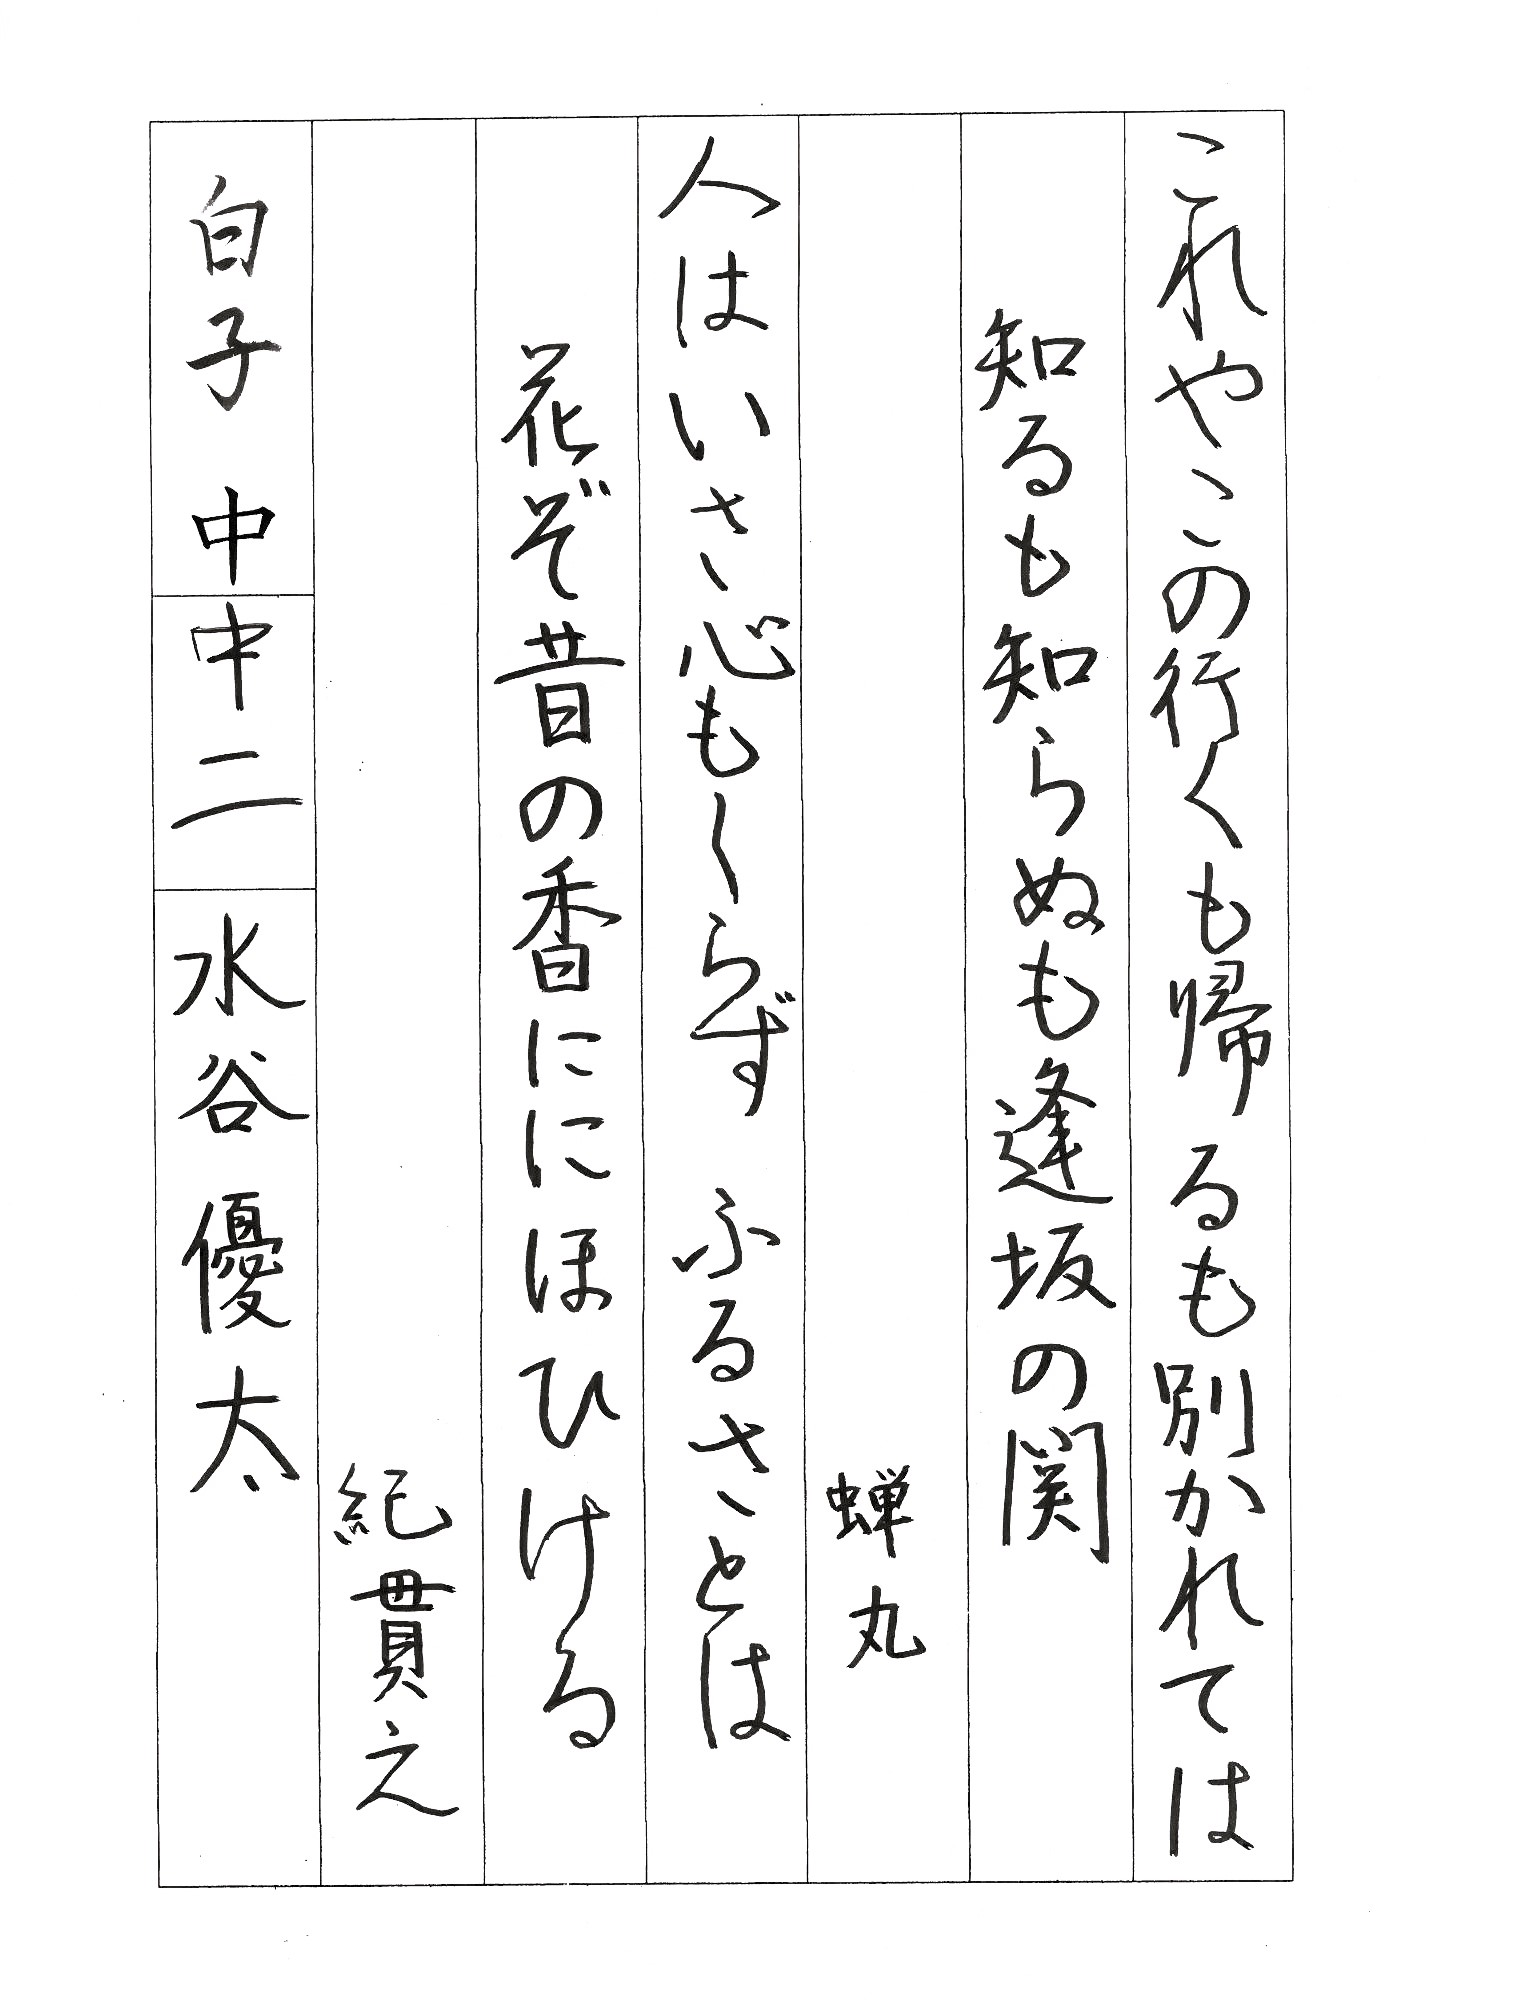 これやこの行くも帰るも別かれては
知るも知らぬも逢坂の関
蝉丸
人はいさ心もしらずふるさとは
花ぞ昔の香ににほひける
紀貫之
白子中 中二 水谷優太